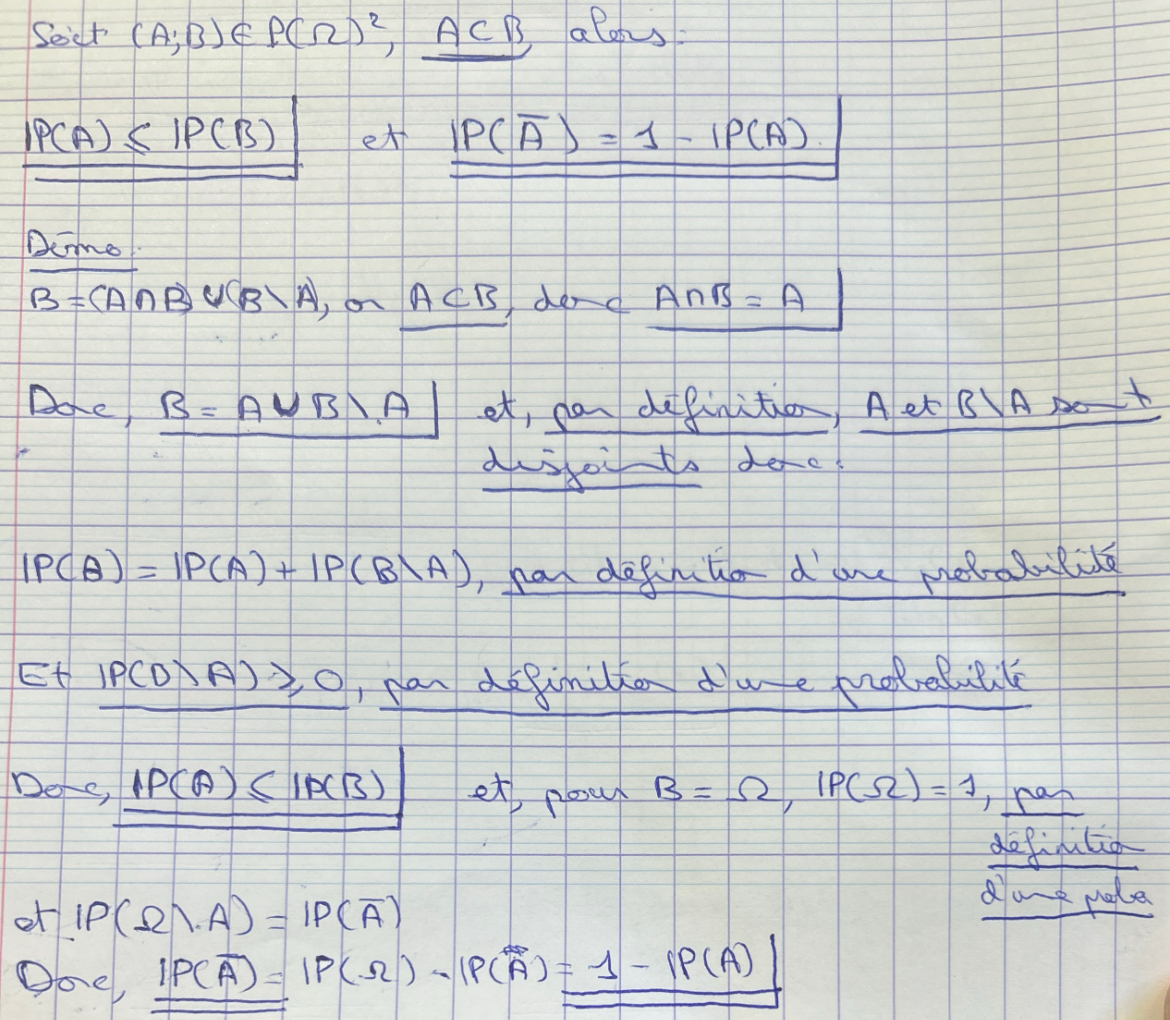 Soit (A;B)∈P(Ω)², A⊂B, alors:
IP(A) ⩽ IP(B) et IP(Ā) = 1 - IP(A).
Démo:
B=(A∩B)∪(B\A), or A⊂B, donc A∩B = A
Donc, B = A∪B\A et, par définition, A et B\A sont
disjoints donc:
IP(B) = IP(A) + IP(B\A), par définition d'une probabilité
Et IP(B\A) ⩾ 0, par définition d'une probabilité
Donc, IP(A) ⩽ IP(B) et, pour B = Ω, IP(Ω) = 1, par
définition
d'une proba
et IP(Ω\A) = IP(Ā)
Donc, IP(Ā) = IP(Ω) - IP(A) = 1 - IP(A)